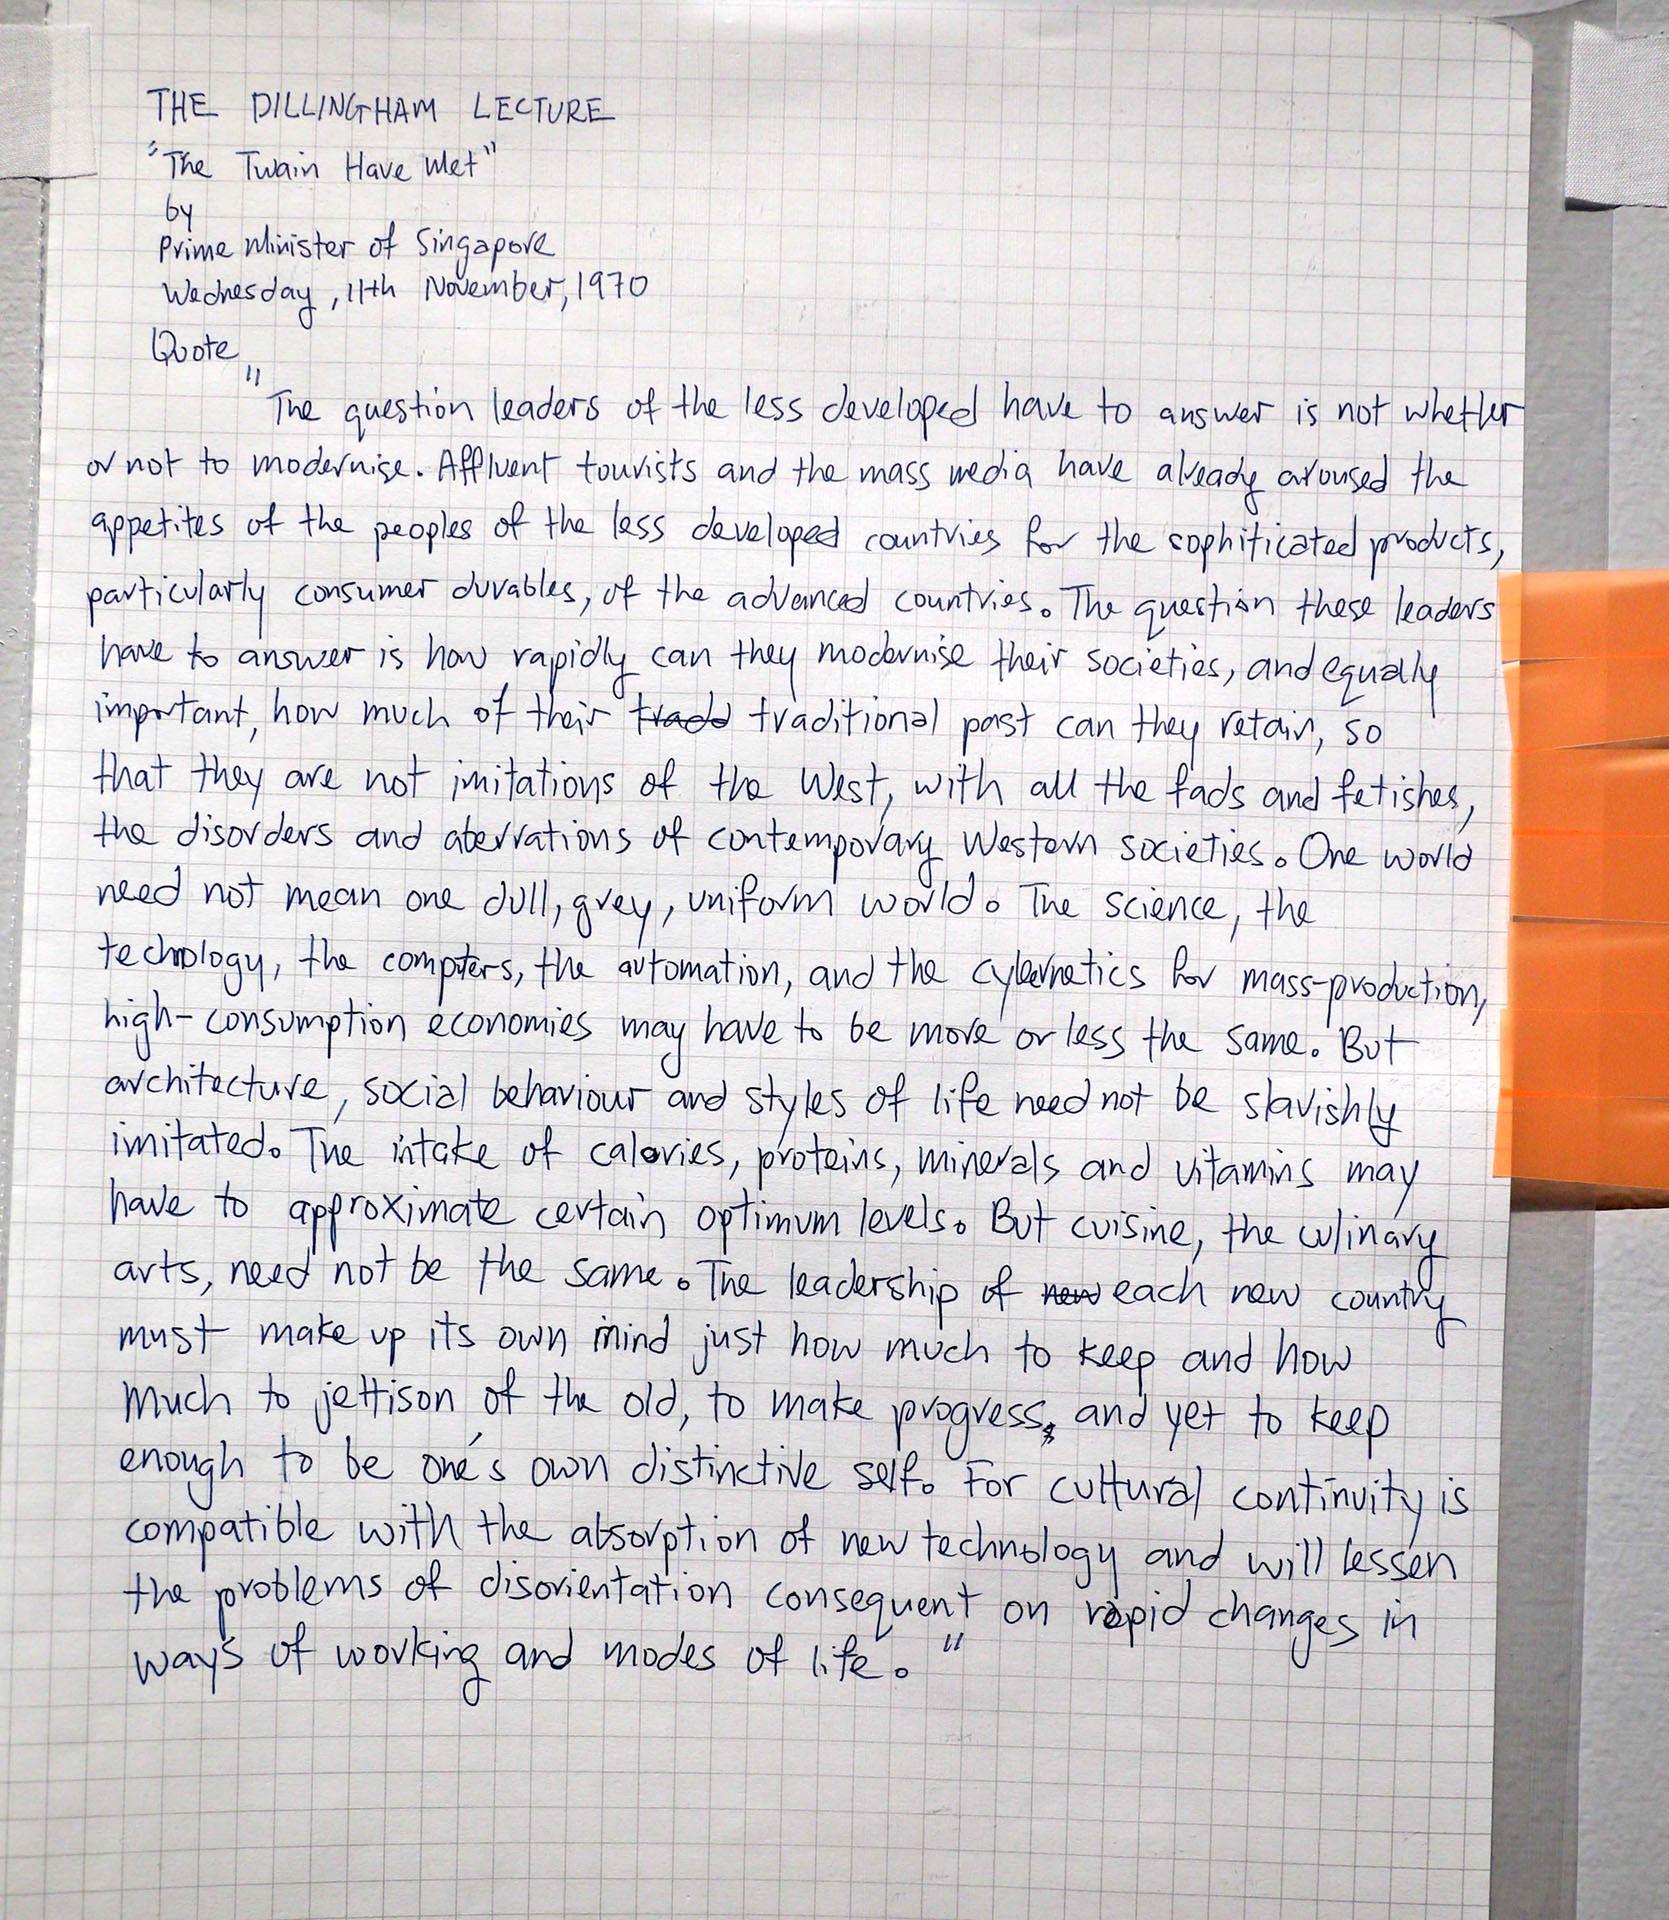 THE DILLINGHAM LECTURE
"The Twain Have Met"
by
Prime Minister of Singapore
Wednesday, 11th November, 1970
Quote
"The question leaders of the less developed have to answer is not whether
or not to modernise. Affluent tourists and the mass media have already aroused the
appetites of the peoples of the less developed countries for the sophiticated products,
particularly consumer durables, of the advanced countries. The question these leaders
have to answer is how rapidly can they modernise their societies, and equally
important, how much of their traditional past can they retain, so
that they are not imitations of the West, with all the fads and fetishes,
the disorders and aberrations of contemporary Western societies. One world
need not mean one dull, grey, uniform world. The science, the
technology, the computers, the automation, and the cybernetics for mass-production,
high-consumption economies may have to be more or less the same. But
architecture, social behaviour and styles of life need not be slavishly
imitated. The intake of calories, proteins, minerals and vitamins may
have to approximate certain optimum levels. But cuisine, the culinary
arts, need not be the same. The leadership of new each new country
must make up its own mind just how much to keep and how
much to jettison of the old, to make progress, and yet to keep
enough to be one's own distinctive self. For cultural continuity is
compatible with the absorption of new technology and will lessen
the problems of disorientation consequent on rapid changes in
ways of working and modes of life."